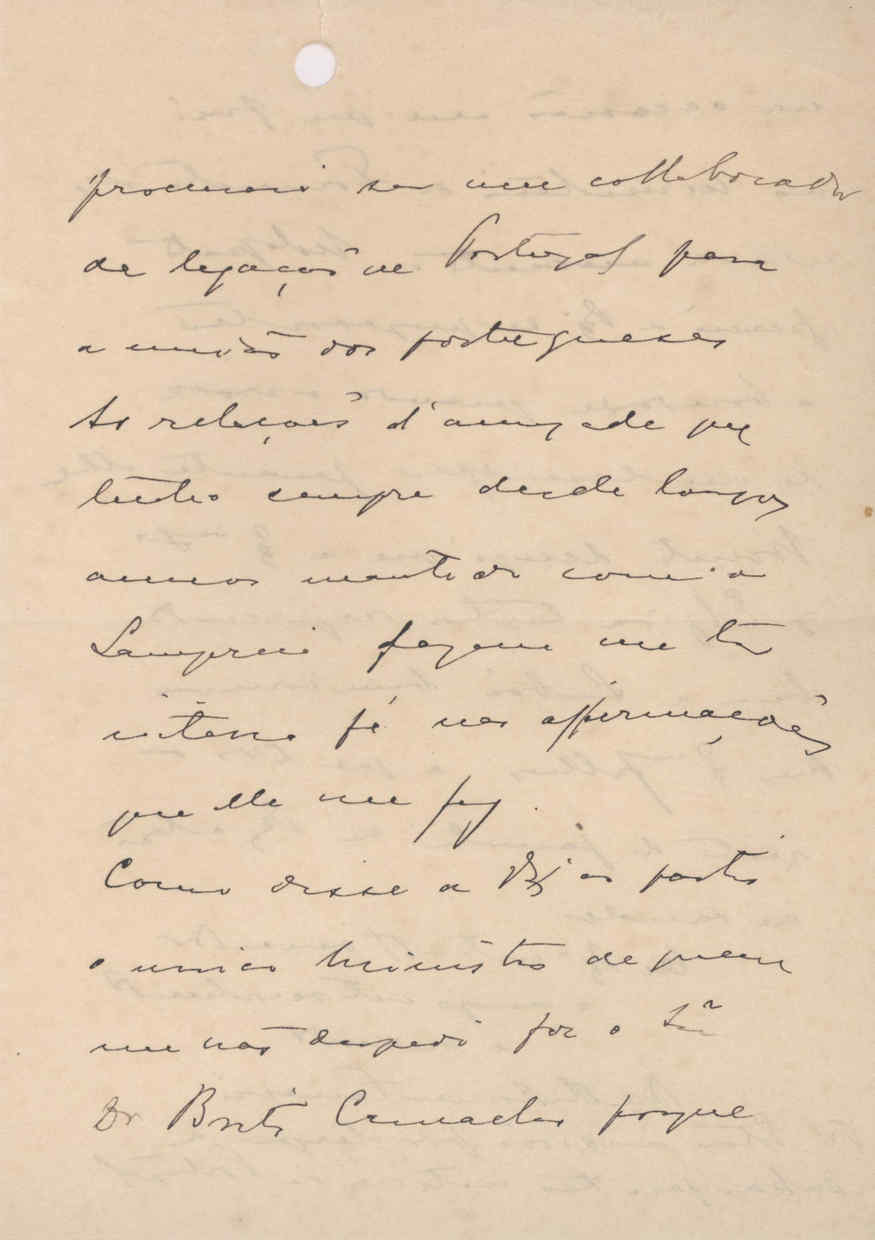 procurarei ser um collaborador
da legação de Portugal para
a união dos portuguezes
As relações d'amizade que
tenho sempre desde longos
annos mantido com o
Lampreia fazem me ter
inteira fé nas affirmações
que elle me faz.
Como disse a ao partir
o unico Ministro de quem
me não despedi foi o Snr
Dr Brito Camacho porque